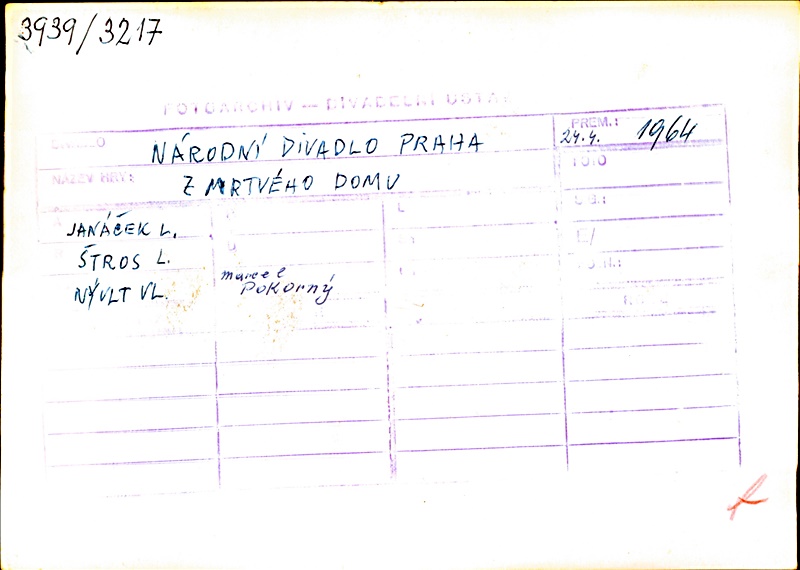 3939/3217
FOTOARCHIV — DIVADELNÍ ÚSTAV
DIVADLO NÁRODNÍ DIVADLO PRAHA
PREM.: 24.4. 1964
NÁZEV HRY: Z MRTVÉHO DOMU
FOTO
JANÁČEK L.
ŠTROS L.
NÝVLT VL.
marcel
Pokorný